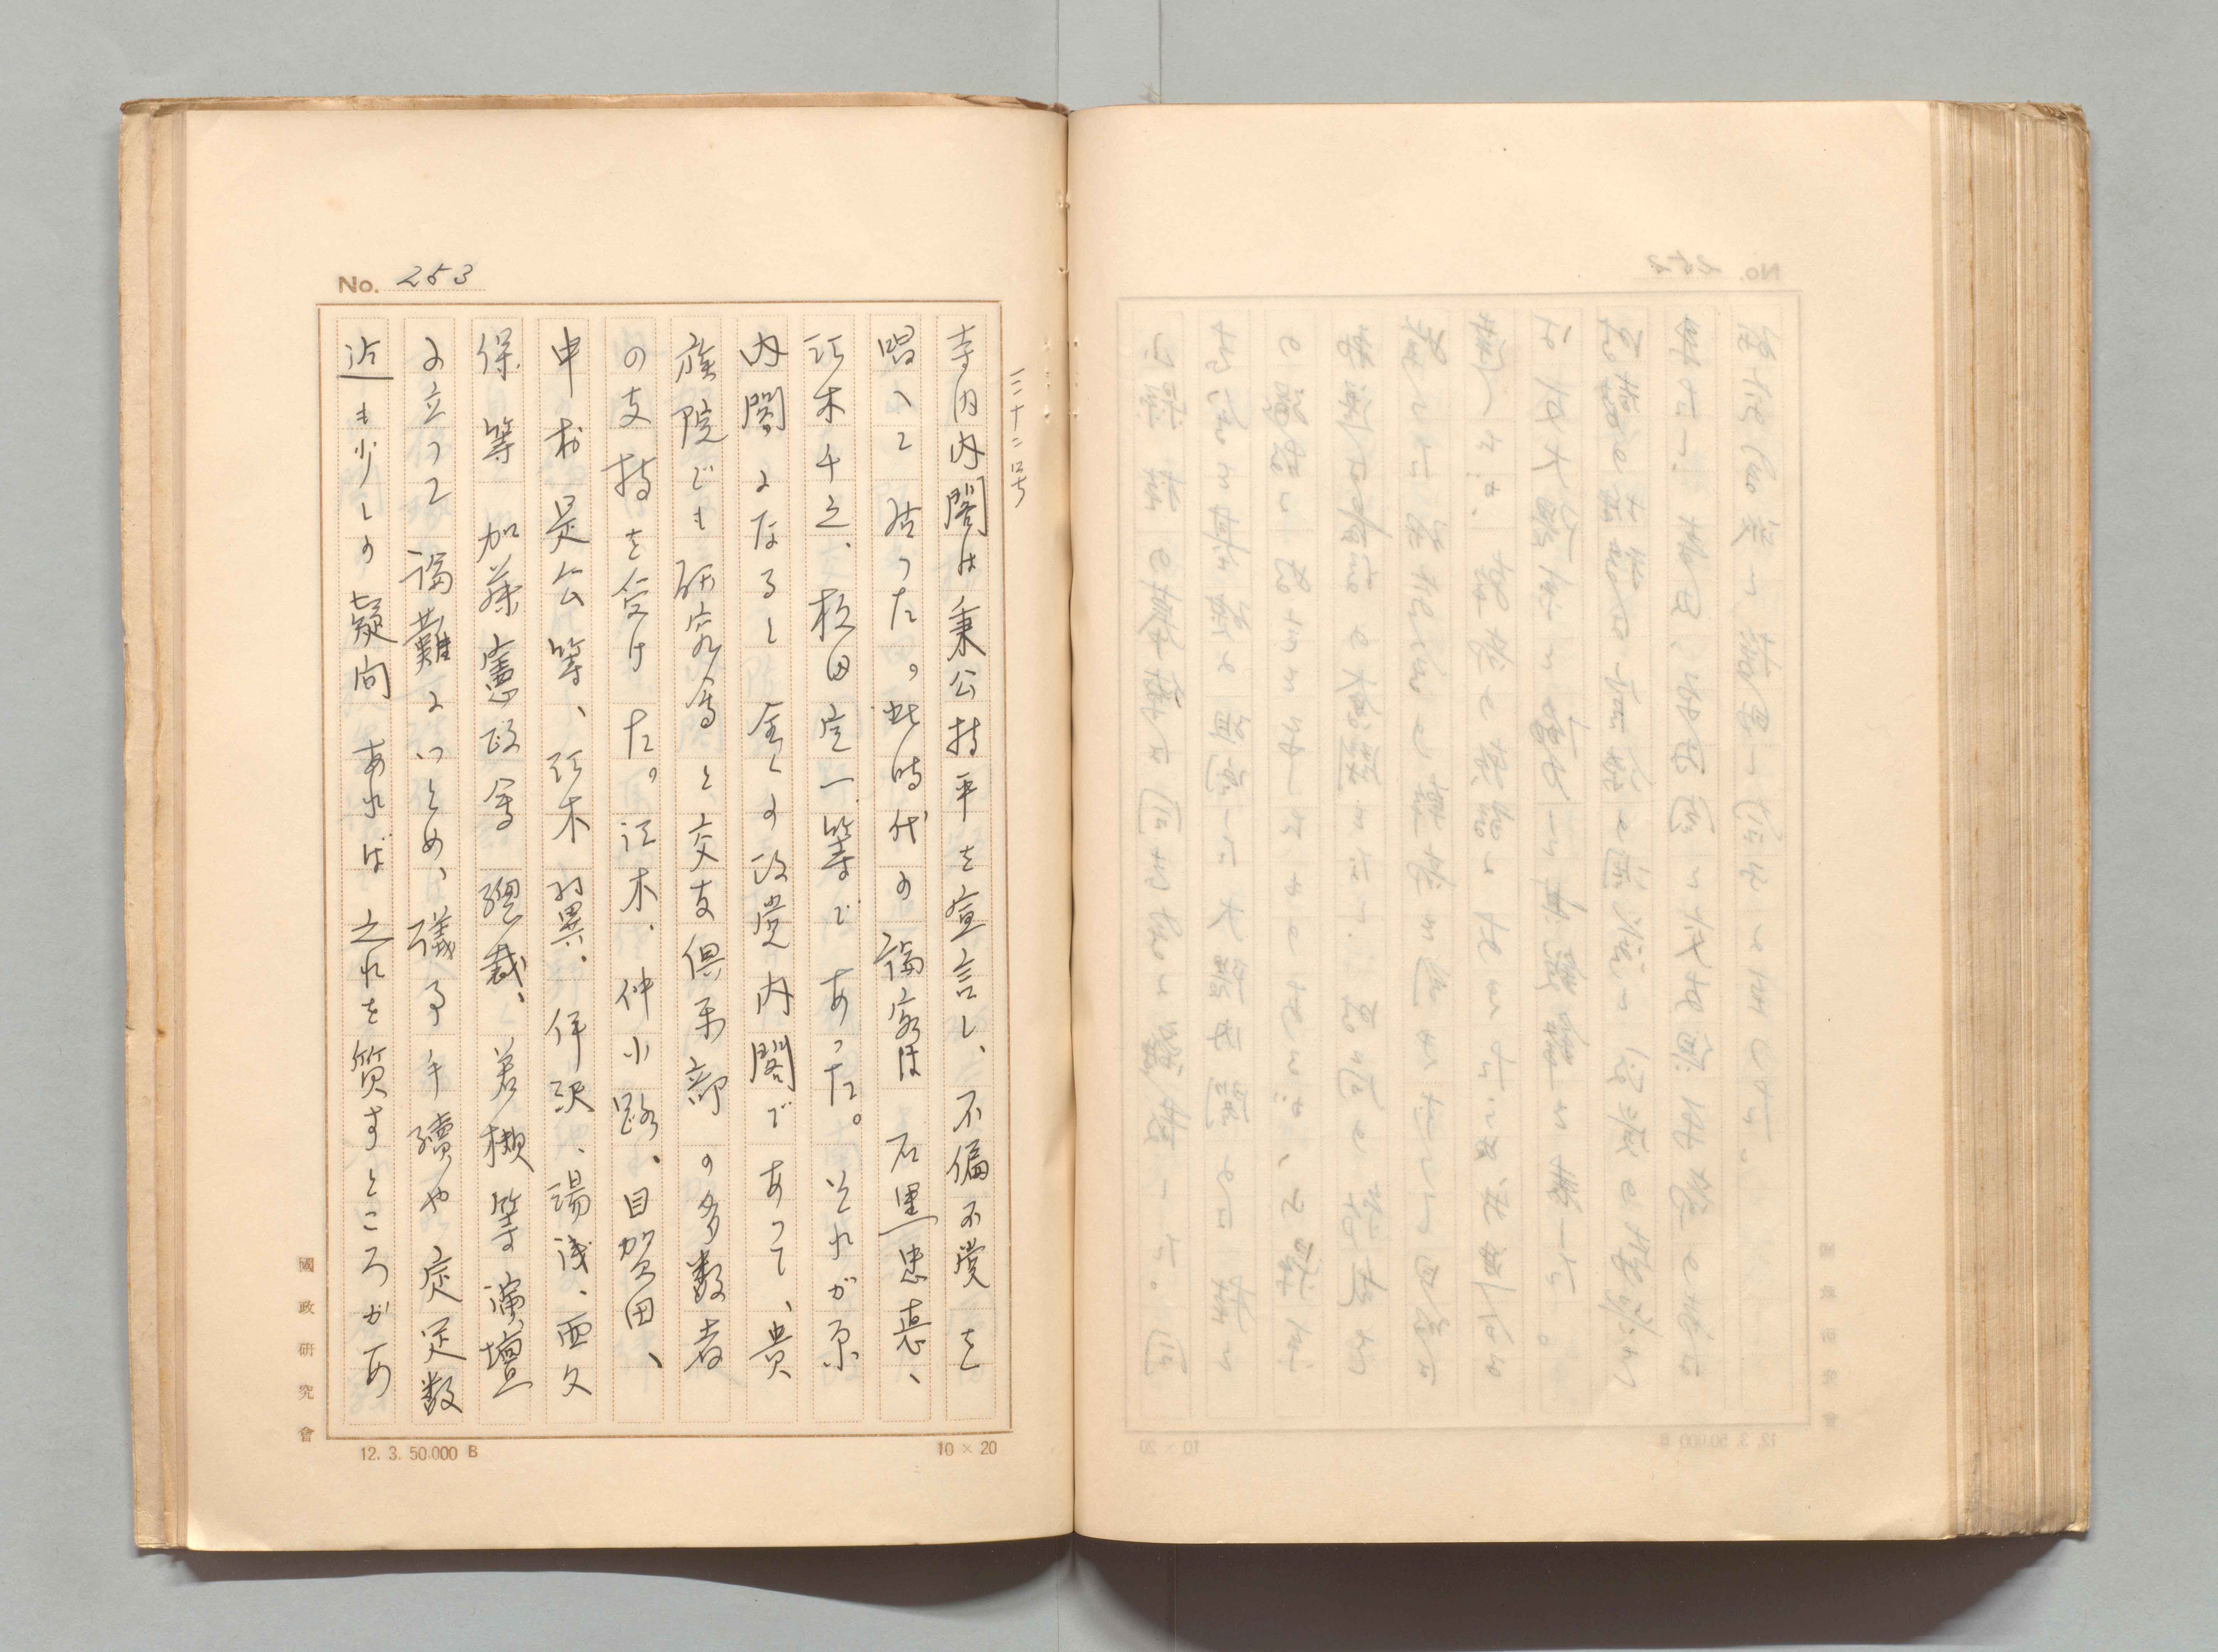 No. 253
三十二号
寺内内閣は秉公持平を宣言し、不偏不党を
唱へて居つた。此時代の論客は石黒忠悳、
江木千之、松田定一等であつた。それが原
内閣になると全くの政党内閣であつて、貴
族院でも研究会と交友倶楽部の多数者
の支持を受けた。江木、仲小路、目賀田、
申村是公等、江木翼、伊沢、湯浅、西久
保等加藤憲政会総裁、若槻等演壇
に立つて論難につとめ、議事手続や定足数
迄も少しの疑問あれば之れを質すところがあ
國政研究會
12. 3. 50.000 B
10 × 20